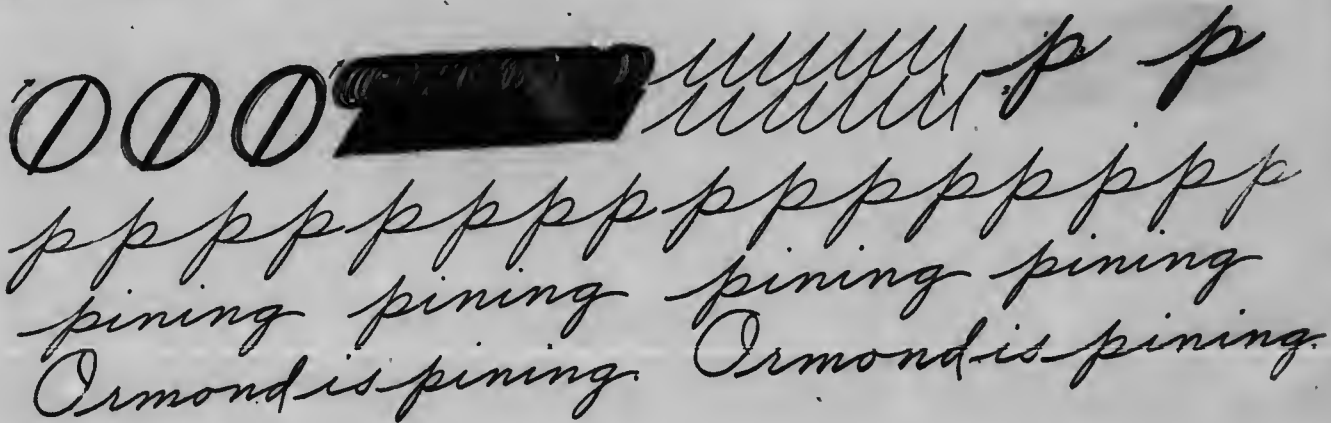 p p
p p p p p p p p p p p p p p p p
pining pining pining pining
Ormond is pining. Ormond is pining.